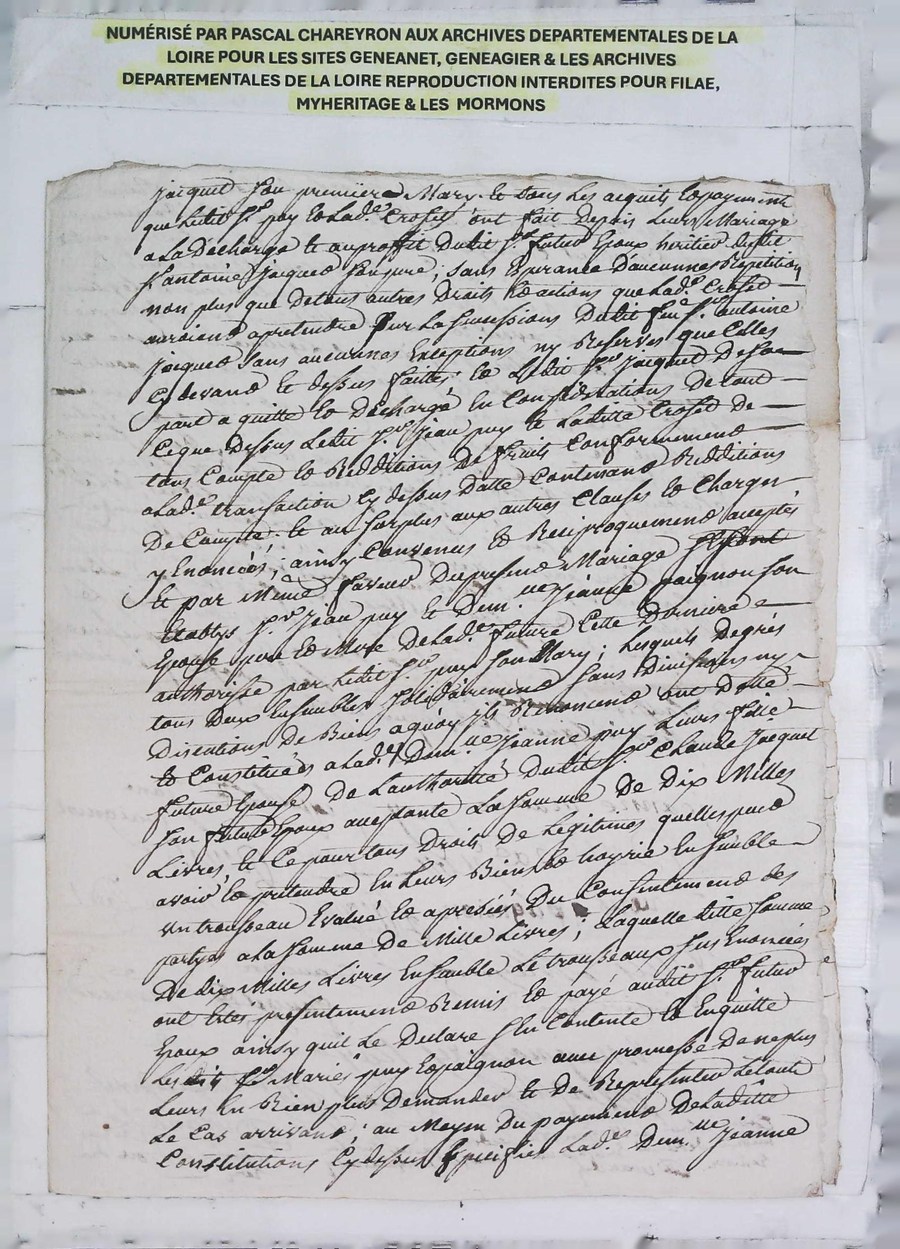 NUMÉRISÉ PAR PASCAL CHAREYRON AUX ARCHIVES DEPARTEMENTALES DE LA
LOIRE POUR LES SITES GENEANET, GENEAGIER & LES ARCHIVES
DEPARTEMENTALES DE LA LOIRE REPRODUCTION INTERDITES POUR FILAE,
MYHERITAGE & LES MORMONS
jacquet son premiere Mary. et tous les acquits et payement
que ledit Sr. puy et Lade. Croset ont fait depuis Leurs Mariage
a La Decharge et au proffit Dudit Sr. futur Epoux heritier dudit
St. antoine Jacques son pere; sans Esperance D'aucunnes Repetition
non plus que Detous autres Droits Et actions que Lade. Croset
auroient apretendre sur La Successions Dudit feu Sr. antoine
Jacques sans aucunnes Exceptions ny Reserves que Celles
Cy devand et dessus faittes; et Ledit Sr. Jacquet De sa
part a quitté et Déchargé en Considérations De tout
Ceque Dessus Ledit Sr. Jean puy et Laditte Croset De
tous Compte et Redditions De fruits Conformement
a Lade. transaction Cy dessus Datte Contenant Redditions
De Compte. et au surplus aux autres Clauses et Charges
y Enoncéés; ainsy Convenus et Reciproquement acceptés
Et par Même faveur Dupresend Mariage
Etablys Sr. Jean puy et Demlle Jeanne paignon son
Epouse pere et Mere De Lade. future Cette Derniere
authorisée par Ledit Sr. puy son Mary; Lesquels Degrés
tous Deux Ensembles Solidairement sans Divisions ny
Discutions De Biens aquoy ils Renoncend ont Dotté
et Constituéés a Lade. Demlle Jeanne puy Leurs fille
future Epouse De L'authorité Dudit Sr. Claude Jacquet
son futur Epoux acceptante La Somme De Dix Milles
Livres, et Ce pour tous Droits De Legitimes quelles peud
avoir Et prétendre En Leurs Biens Et hoyrie Ensemble
un trousseau Evalué Et apretiés Du Consentement des
partyes a La Somme De Mille Livres; Laquelle ditte Somme
De dix Milles Livres Ensemble Le trousseaux sus Enoncéés
ont Etés presentement Remis Et payé audit Sr. futur
Epoux ainsy quil Le Declare S'En Contente Et Enquitte
Lesdits Mariés puy Et paignon avec promesse De ne plus
Leurs En Rien plus Demander et De Representer Le tout
Le Cas arrivant; au Moyen Du payement De Laditte
Constitutions Cy dessus Spécifiés Lade. Demlle Jeanne